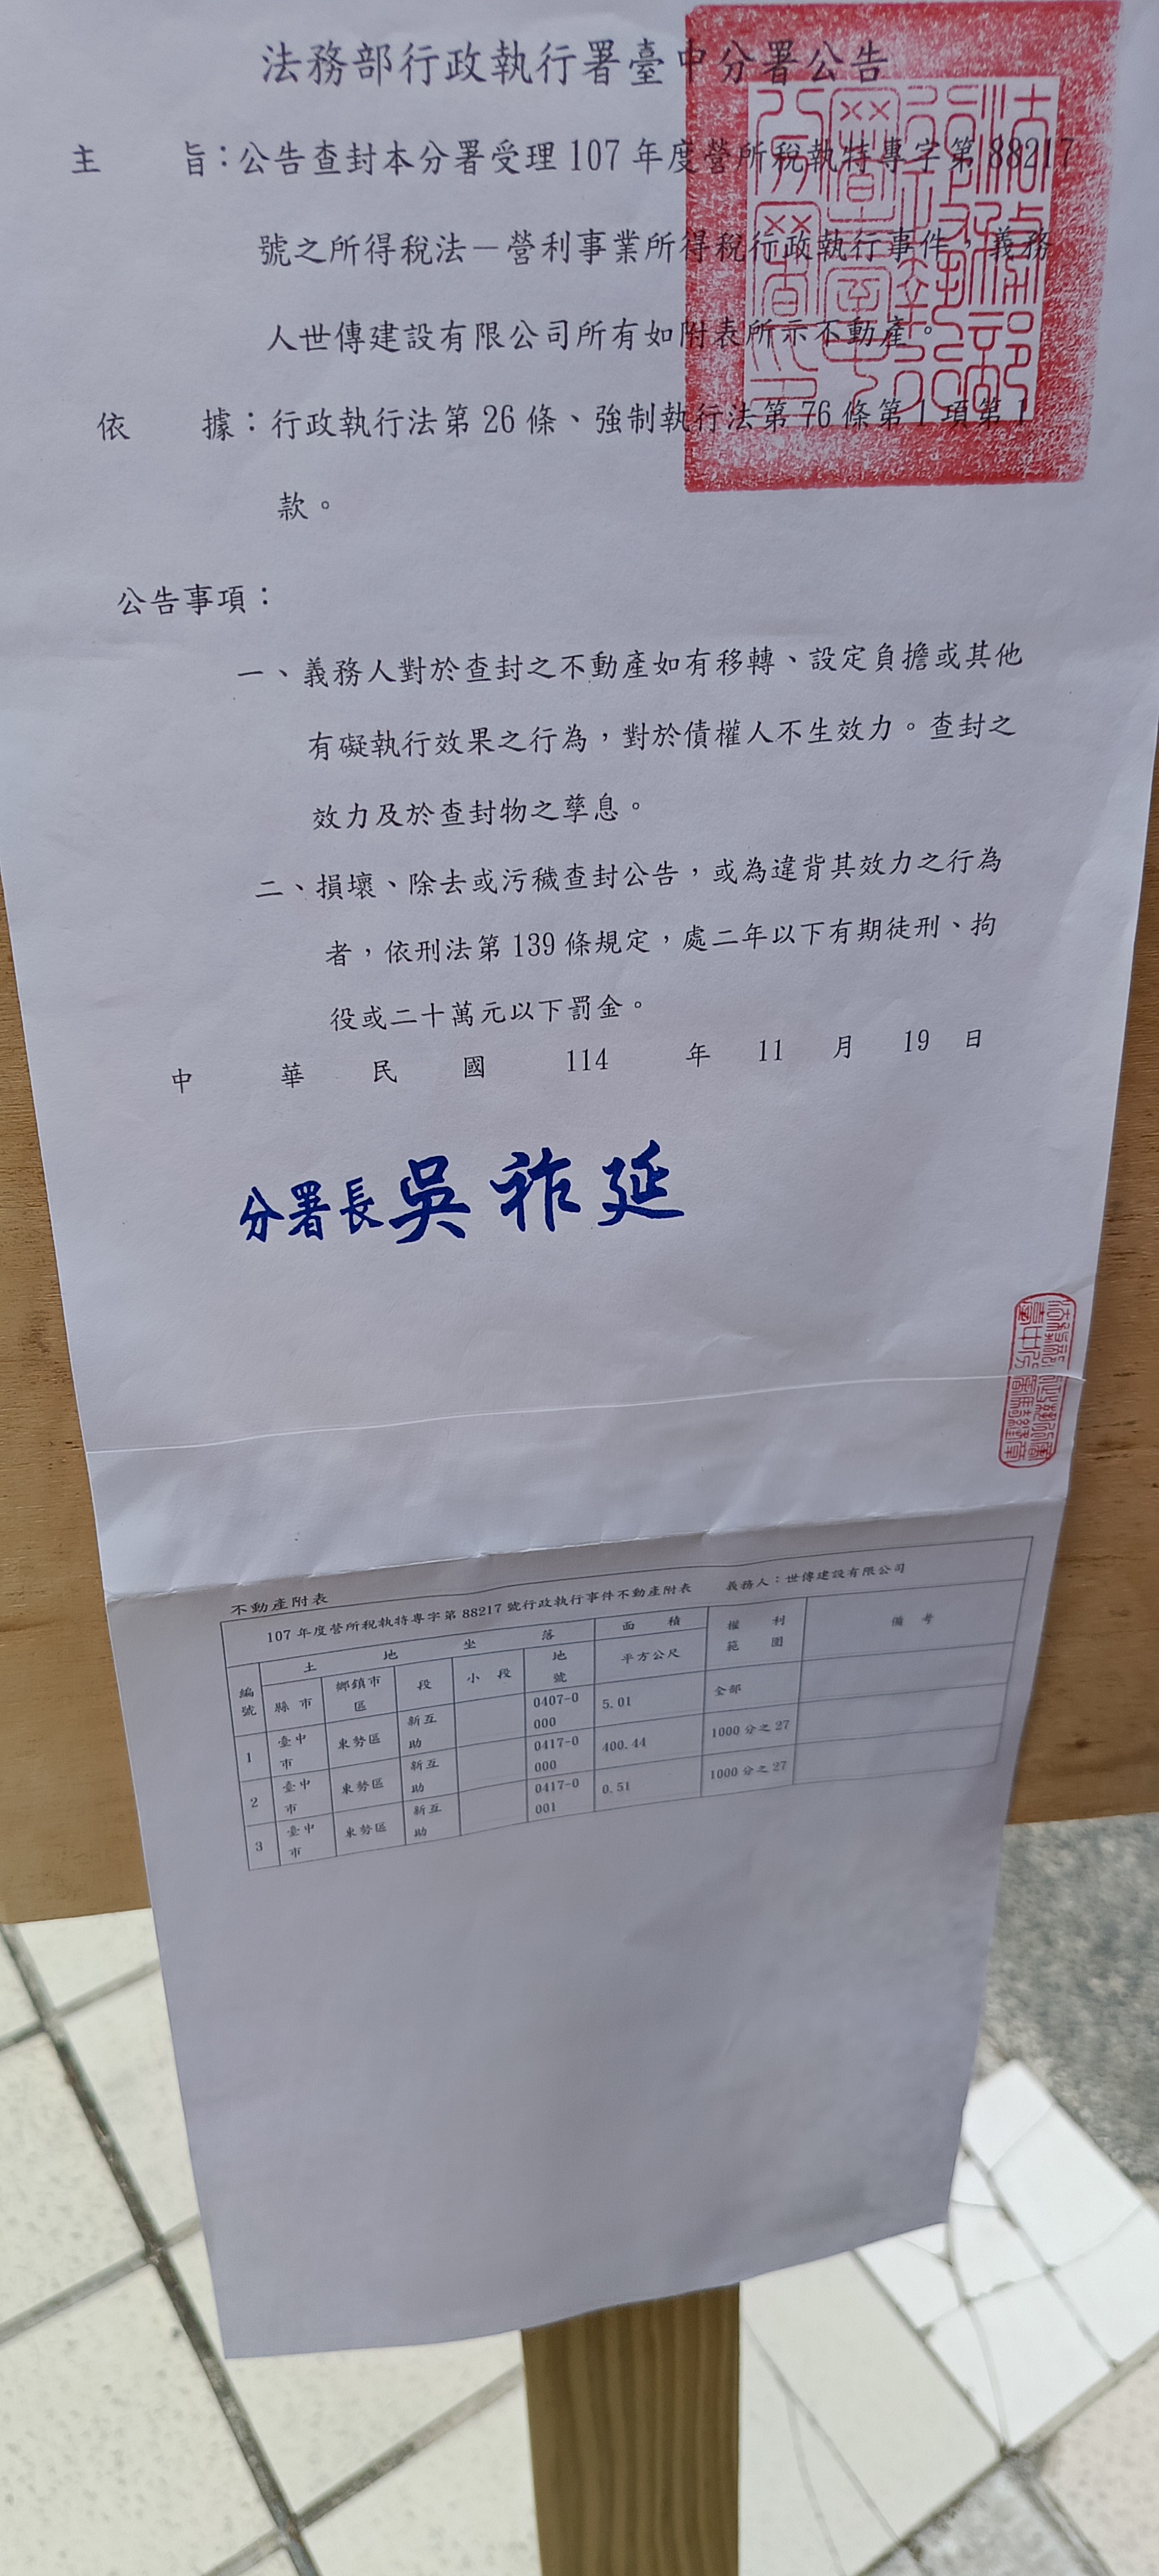 法務部行政執行署臺中分署公告
主 旨：公告查封本分署受理 107 年度營所稅執特專字第 88217
號之所得稅法－營利事業所得稅行政執行事件，義務
人世傳建設有限公司所有如附表所示不動產。
依 據：行政執行法第 26 條、強制執行法第 76 條第 1 項第 1
款。
公告事項：
一、義務人對於查封之不動產如有移轉、設定負擔或其他
有礙執行效果之行為，對於債權人不生效力。查封之
效力及於查封物之孳息。
二、損壞、除去或污穢查封公告，或為違背其效力之行為
者，依刑法第 139 條規定，處二年以下有期徒刑、拘
役或二十萬元以下罰金。
中 華 民 國 114 年 11 月 19 日
分署長 吳祚延
不動產附表
107 年度營所稅執特專字第 88217 號行政執行事件不動產附表 義務人：世傳建設有限公司
編號 土地坐落 面積 權利範圍 備考
縣市 鄉鎮市區 段 小段 地號 平方公尺
1 臺中市 東勢區 新互助 0407-0000 5.01 全部
2 臺中市 東勢區 新互助 0417-0000 400.44 1000 分之 27
3 臺中市 東勢區 新互助 0417-0001 0.51 1000 分之 27